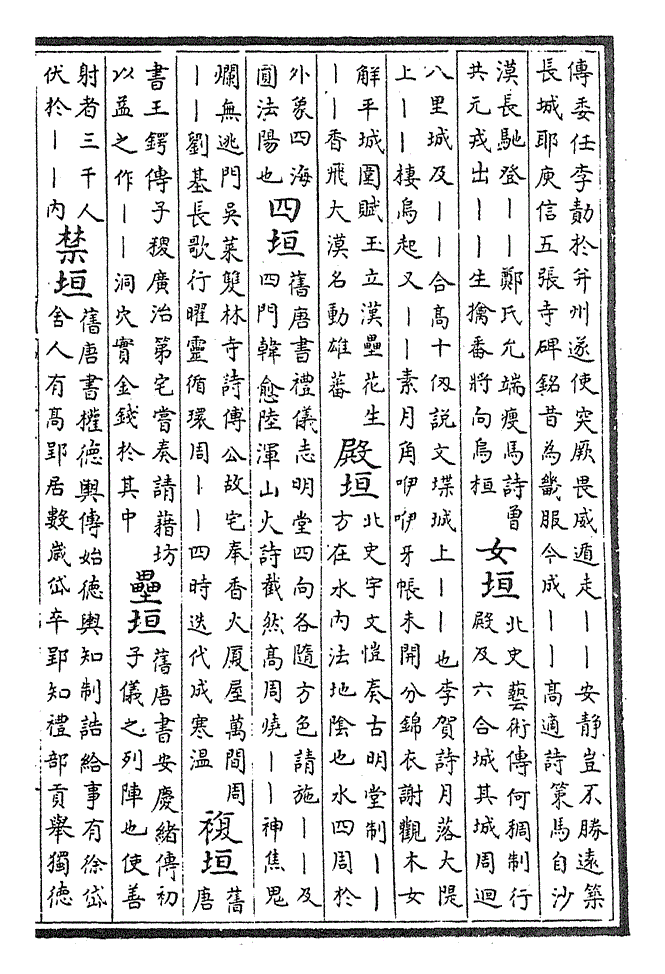 傳委任李勣於并州遂使突厥畏威遁走丨丨安靜豈不勝遠築
長城耶庾信五張寺碑銘昔為畿服今成丨丨高適詩策馬自沙
漠長馳登丨丨鄭氏允端瘦馬詩曾
共元戎出丨丨生擒番將向烏桓
女垣
北史藝術傳何稠制行
殿及六合城其城周迴
八里城及丨丨合高十仭説文堞城上丨丨也李賀詩月落大隄
上丨丨棲烏起又丨丨素月角咿咿牙帳未開分錦衣謝觀木女
解平城圍賦玉立漢壘花生
丨丨香飛大漠名動雄蕃
殿垣
北史宇文愷奏古明堂制丨丨
方在水内法地陰也水四周於
外象四海
圓法陽也
四垣
舊唐書禮儀志明堂四向各隨方色請施丨丨及
四門韓愈陸渾山火詩截然高周燒丨丨神焦鬼
爛無逃門吳萊雙林寺詩傅公故宅奉香火厦屋萬間周
丨丨劉基長歌行曜靈循環周丨丨四時迭代成寒温
複垣
舊
唐
書王鍔傳子稷廣治第宅嘗奏請藉坊
以益之作丨丨洞穴實金錢於其中
壘垣
舊唐書安慶緒傳初
子儀之列陣也使善
射者三千人
伏於丨丨内
禁垣
舊唐書權德輿傳始德輿知制誥給事有徐岱
舍人有高郢居數歲岱卒郢知禮部貢舉獨德